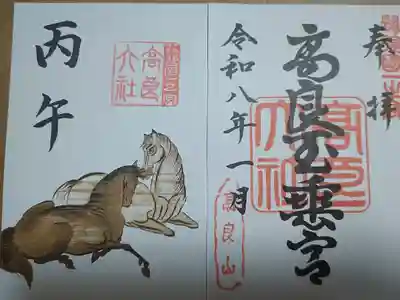 奉拝
高良玉垂宮
高良大社
令和八年一月
高良山
丙午
高良大社